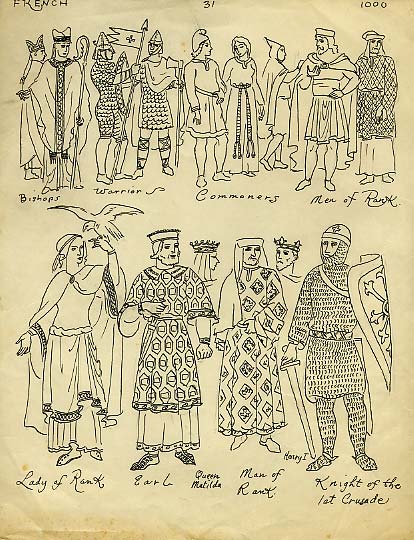 FRENCH 31 1000
Bishops Warriors Commoners Men of Rank.
Lady of Rank Earl Queen Matilda Man of Rank. Henry I Knight of the 1st Crusade